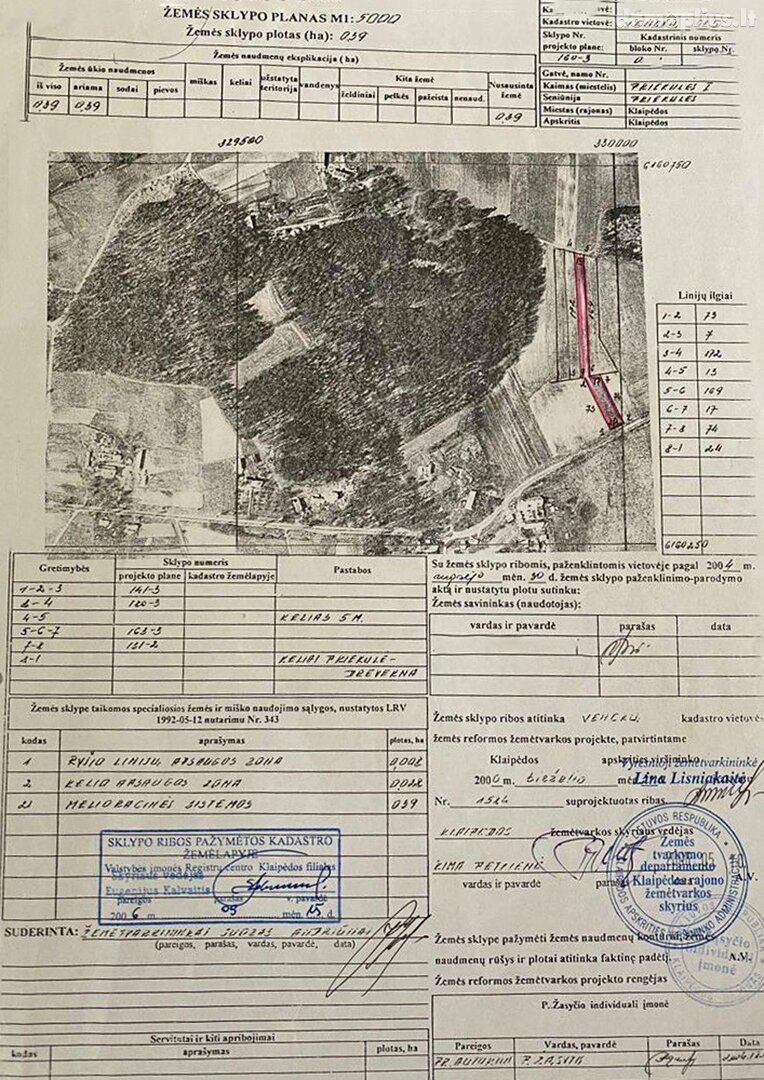 ŽEMĖS SKLYPO PLANAS M1: 5000
Žemės sklypo plotas (ha): 0,39
Žemės naudmenų eksplikacija (ha)
Žemės ūkio naudmenos
miškas
keliai
užstatyta teritorija
vandenys
Kita žemė
Nusausinta žemė
iš viso
ariama
sodai
pievos
želdiniai
pelkės
pažeista
nenaud.
0,39 0,39 0,39
Kadastro vietovė:
Sklypo Nr. projekto plane:
160-3
Kadastrinis numeris
bloko Nr.
sklypo Nr.
0
Gatvė, namo Nr.
Kaimas (miestelis) PRIEKULĖS I
Seniūnija PRIEKULĖS
Miestas (rajonas) Klaipėdos
Apskritis Klaipėdos
329500
330000
6160750
6160250
Linijų ilgiai
1-2 73
2-3 7
3-4 172
4-5 13
5-6 169
6-7 17
7-8 74
8-1 24
Gretimybės
Sklypo numeris
Pastabos
projekto plane
kadastro žemėlapyje
1-2-3 141-3
3-4 120-3
4-5 KELIAS 5 M.
5-6-7 163-3
7-8 151-2
8-1 KELIAI PRIEKULĖ-
DREVERNA
Su žemės sklypo ribomis, paženklintomis vietovėje pagal 2004 m.
mėn. 30 d. žemės sklypo paženklinimo-parodymo
aktą ir nustatytu plotu sutinku:
Žemės savininkas (naudotojas):
vardas ir pavardė
parašas
data
Žemės sklype taikomos specialiosios žemės ir miško naudojimo sąlygos, nustatytos LRV
1992-05-12 nutarimu Nr. 343
kodas
aprašymas
plotas, ha
1 RYŠIO LINIJŲ APSAUGOS ZONA 0,002
2 KELIO APSAUGOS ZONA 0,022
21 MELIORACINĖS SISTEMOS 0,39
Žemės sklypo ribos atitinka VENCKŲ kadastro vietovės
žemės reformos žemėtvarkos projekte, patvirtintame
Klaipėdos apskrities viršininko
200 m. birželio
Vyresnioji žemėtvarkininkė
Lina Lisniakaitė
Nr. 1524 suprojektuotas ribas.
KLAIPĖDOS žemėtvarkos skyriaus vedėjas
RIMA PETKIENĖ
vardas ir pavardė
A.V.
LIETUVOS RESPUBLIKA
Žemės
tvarkymo
departamento
Klaipėdos rajono
žemėtvarkos
skyrius
SKLYPO RIBOS PAŽYMĖTOS KADASTRO
ŽEMĖLAPYJE
Valstybės įmonės Registrų centro Klaipėdos filialas
Skyriaus vedėjas
Eugenijus Kalvaitis
pareigos parašas v. pavardė
2006 m. 09 mėn. 15 d.
SUDERINTA: ŽEMĖTVARKININKAS JUOZAS
(pareigos, parašas, vardas, pavardė, data)
Žemės sklype pažymėti žemės naudmenų kontūrai, žemės
naudmenų rūšys ir plotai atitinka faktinę padėtį.
A.V.
Žemės reformos žemėtvarkos projekto rengėjas
P. Žasyčio individuali įmonė
Servitutai ir kiti apribojimai
kodas
aprašymas
plotas, ha
Pareigos
Vardas, pavardė
Parašas
Data